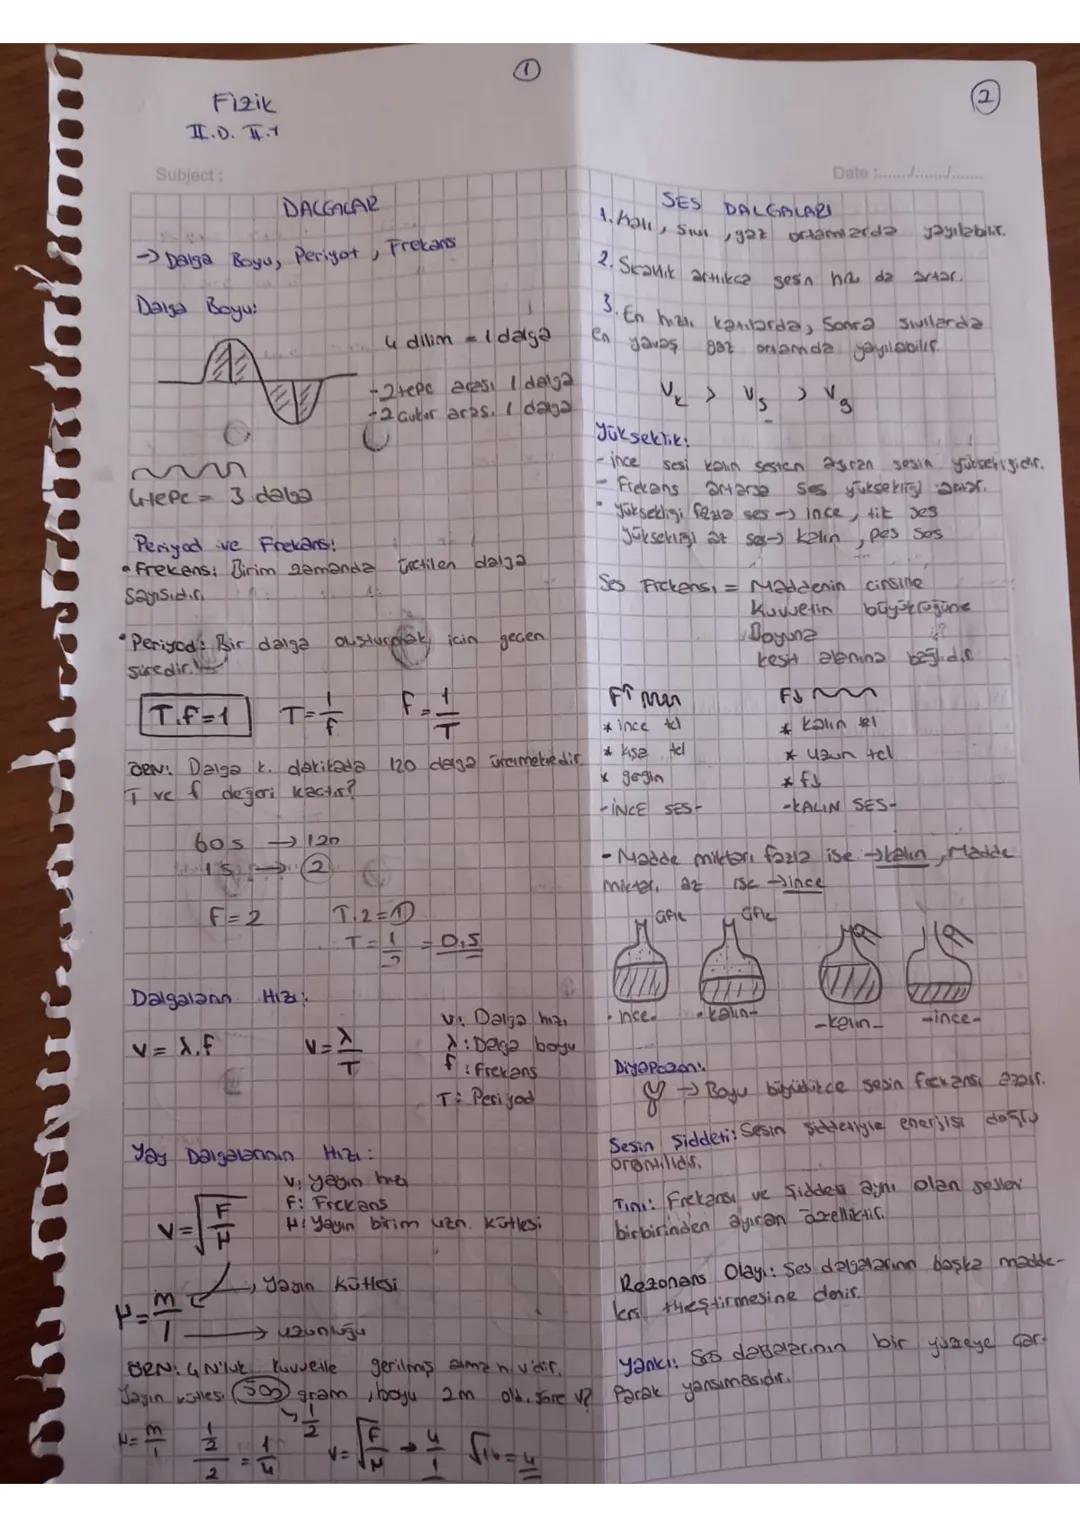 ①
Fizik
II.D. II.Y
Subject:
DALGALAR
→ Dalga Boyu, Periyot, Frekans
Dalga Boyu:
4 dilim = 1 dalga
- 2 tepe arası 1 dalga
- 2 çukur aras. 1 dalga
4 tepe = 3 dalga
Periyod ve Frekans:
• Frekans: Birim zamanda üretilen dalga
sayısıdır.
• Periyod: Bir dalga oluşturmak için geçen
süredir.
T.f=1 T=1/f F=1/T
ÖRN: Dalga k. dakikada 120 dalga üretmektedir.
T ve f değeri kaçtır?
60 s → 120
1 s → ②
F=2 T.2=①
T=1/2 = 0,5
Dalgaların Hızı:
V = λ.f V=λ/T
V: Dalga hızı
λ: Dalga boyu
f: Frekans
T: Periyod
Yay Dalgalarının Hızı:
V: yayın hızı
F: Frekans
μ: Yayın birim uzn. kütlesi
V=√F/μ
μ=m/l → Yayın kütlesi
→ uzunluğu
ÖRN: 4 N'luk kuvvetle gerilmiş
Yayın kütlesi 500 gram, boyu 2m old. göre V?
→ 1/2
μ=m/l 1/2/2 = 1/4 V=√F/μ → 4/1 √16=4
②
Date:....../....../......
SES DALGALARI
1. Katı, sıvı, gaz ortamlarda yayılabilir.
2. Sıcaklık arttıkça sesin hızı da artar.
3. En hızlı katılarda, Sonra sıvılarda
en yavaş gaz ortamda yayılabilir.
Vk > Vs > Vg
Yükseklik:
- ince sesi kalın sesten ayıran sesin yüksekliğidir.
- Frekans artarsa ses yüksekliği artar.
• Yüksekliği fazla ses → ince, tik ses
Yüksekliği az ses → kalın, pes ses
Ses Frekansı = Maddenin cinsine
Kuvvetin büyüklüğüne
Boyuna
kesit alanına bağlıdır
F↑ F↓
* ince tel * kalın tel
* kısa tel * uzun tel
* gergin * f↓
- İNCE SES - - KALIN SES -
- Madde miktarı fazla ise → kalın, Madde
miktar. az ise → ince
üfle üfle
- ince - - kalın - - kalın - - ince -
Diyapozon:
→ Boyu büyüdükçe sesin frekansı azalır.
Sesin Şiddeti: Sesin şiddetiyle enerjisi doğru
orantılıdır.
Tını: Frekansı ve şiddeti aynı olan sesleri
birbirinden ayıran özelliktir.
Rezonans Olayı: Ses dalgalarının başka madde-
leri titreştirmesine denir.
Yankı: Ses dalgalarının bir yüzeye çar-
parak yansımasıdır.